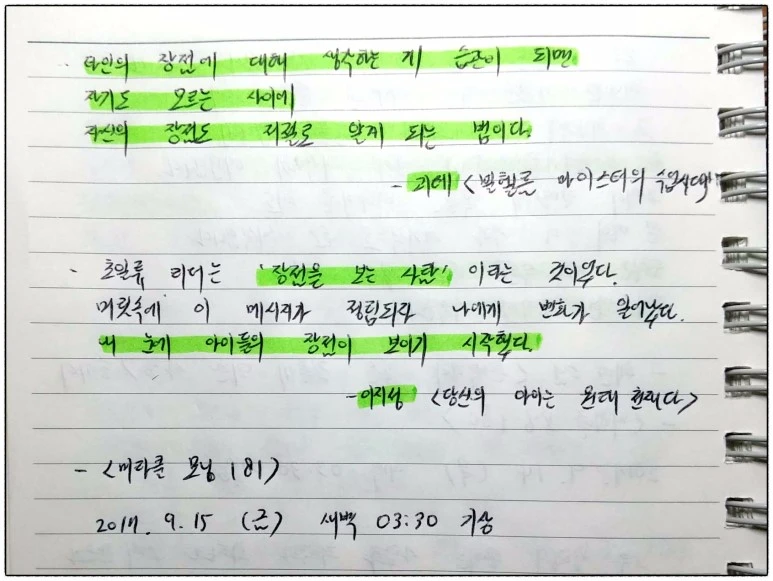 · 타인의 장점에 대해 생각하는 게 습관이 되면
자기도 모르는 사이에
자신의 장점도 저절로 알게 되는 법이다.
- 괴테 <빌헬름 마이스터의 수업시대>
· 초일류 리더는 '장점을 보는 사람' 이라는 것이었다.
머릿속에 이 메시지가 정립되자 나에게 변화가 일어났다.
내 눈에 아이들의 장점이 보이기 시작했다.
- 이지성 <당신의 아이는 원래 천재다>
- <미라클 모닝 181>
2017. 9. 15 (금) 새벽 03:30 기상